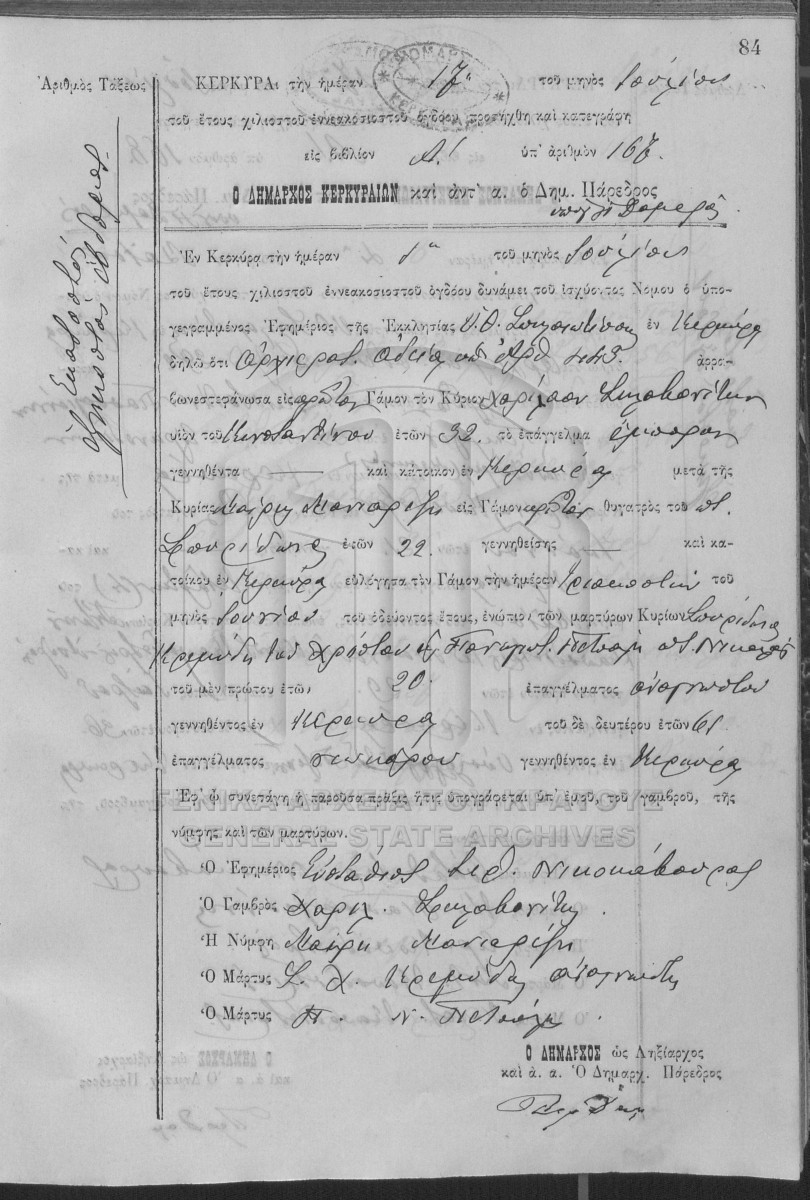 84
Ἀριθμὸς Τάξεως
Ἑκατοστὸς ἑξηκοστὸς ἕβδομος
ΚΕΡΚΥΡΑ τὴν ἡμέραν 17 τοῦ μηνὸς Ἰουλίου
τοῦ ἔτους χιλιοστοῦ ἐννεακοσιοστοῦ ὀγδόου προσήχθη καὶ κατεγράφη
εἰς βιβλίον Α' ὑπ' ἀριθμὸν 167.
Ο ΔΗΜΑΡΧΟΣ ΚΕΡΚΥΡΑΙΩΝ καὶ ἀντ' α. ὁ Δημ. Πάρεδρος
Ἐν Κερκύρᾳ τὴν ἡμέραν 1η τοῦ μηνὸς Ἰουλίου
τοῦ ἔτους χιλιοστοῦ ἐννεακοσιοστοῦ ὀγδόου δυνάμει τοῦ ἰσχύοντος Νομου ὁ ὑπο-
γεγραμμένος Ἐφημέριος τῆς Ἐκκλησίας Υ. Θ. Σπηλαιωτίσσης ἐν Κερκύρᾳ
δηλῶ ὅτι ἀρχιερατ. ἀδείᾳ ὑπ' ἀρθ 443. ἀρρα-
βωνεστεφάνωσα εἰς πρῶτον Γάμον τὸν Κύριον Χαρίλαον
υἱὸν τοῦ Κωνσταντίνου ἐτῶν 32. τὸ ἐπάγγελμα ἔμπορον
γεννηθέντα — καὶ κάτοικον ἐν Κερκύρᾳ μετὰ τῆς
Κυρίας Μαίρης Μαναρίζη εἰς Γάμον πρῶτον θυγατρὸς τοῦ ποτ.
Σπυρίδωνος ἐτῶν 22. γεννηθείσης — καὶ κα-
τοίκου ἐν Κερκύρᾳ εὐλόγησα τὸν Γάμον τὴν ἡμέραν Τριακοστὴν τοῦ
μηνὸς Ἰουνίου τοῦ ὁδεύοντος ἔτους, ἐνώπιον τῶν μαρτύρων Κυρίων Σπυρίδωνος
Κρεμύδη τοῦ Χρήστου καὶ Παναγιώτ. Πετσάλη ποτ. Νικολάου
τοῦ μὲν πρώτου ἐτῶν 20. ἐπαγγέλματος ἀναγνώστου
γεννηθέντος ἐν Κερκύρᾳ τοῦ δὲ δευτέρου ἐτῶν 61
ἐπαγγέλματος νεωκόρου γεννηθέντος ἐν Κερκύρᾳ
Ἐφ' ᾧ συνετάγη ἡ παροῦσα πρᾶξις ἥτις ὑπογράφεται ὑπ' ἐμοῦ, τοῦ γαμβροῦ, τῆς
νύμφης καὶ τῶν μαρτύρων.
ΓΕΝΙΚΑ ΑΡΧΕΙΑ ΤΟΥ ΚΡΑΤΟΥΣ
GENERAL STATE ARCHIVES
Ὁ Ἐφημέριος Εὐστάθιος Νικοκάβουρας
Ὁ Γαμβρὸς Χαριλ.
Ἡ Νύμφη Μαίρη Μαναρίζη
Ὁ Μάρτυς Σ. Χ. Κρεμύδης ἀναγνώστης
Ὁ Μάρτυς Π. Ν. Πετσάλη
Ο ΔΗΜΑΡΧΟΣ ὡς Ληξίαρχος
καὶ ἀ. α. Ὁ Δημαρχ. Πάρεδρος